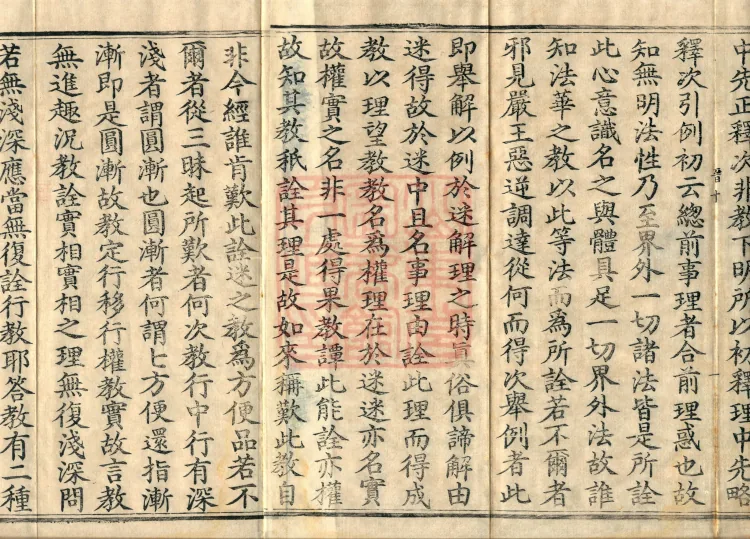 中先正釋次非教下明所以初釋理中先略
釋次引例初云總前事理者合前理惑也故
知無明法性乃至界外一切諸法皆是所詮
此心意識名之與體具足一切界外法故誰
知法華之教以此等法而為所詮若不爾者
邪見嚴王惡逆調達從何而得次舉例者此
即舉解以例於迷解理之時真俗俱諦解由
迷得故於迷中且名事理由詮此理而得成
教以理望教教名為權理在於迷迷亦名實
故權實之名非一處得果教譚此能詮亦權
故知其教秖詮其理是故如來稱歎此教自
非今經誰肯歎此詮迷之教為方便品若不
爾者從三昧起所歎者何次教行中行有深
淺者謂圓漸也圓漸者何謂七方便還指漸
漸即是圓漸故教定行移行權教實故言教
無進趣況教詮實相實相之理無復淺深問
若無淺深應當無復詮行教耶答教有二種